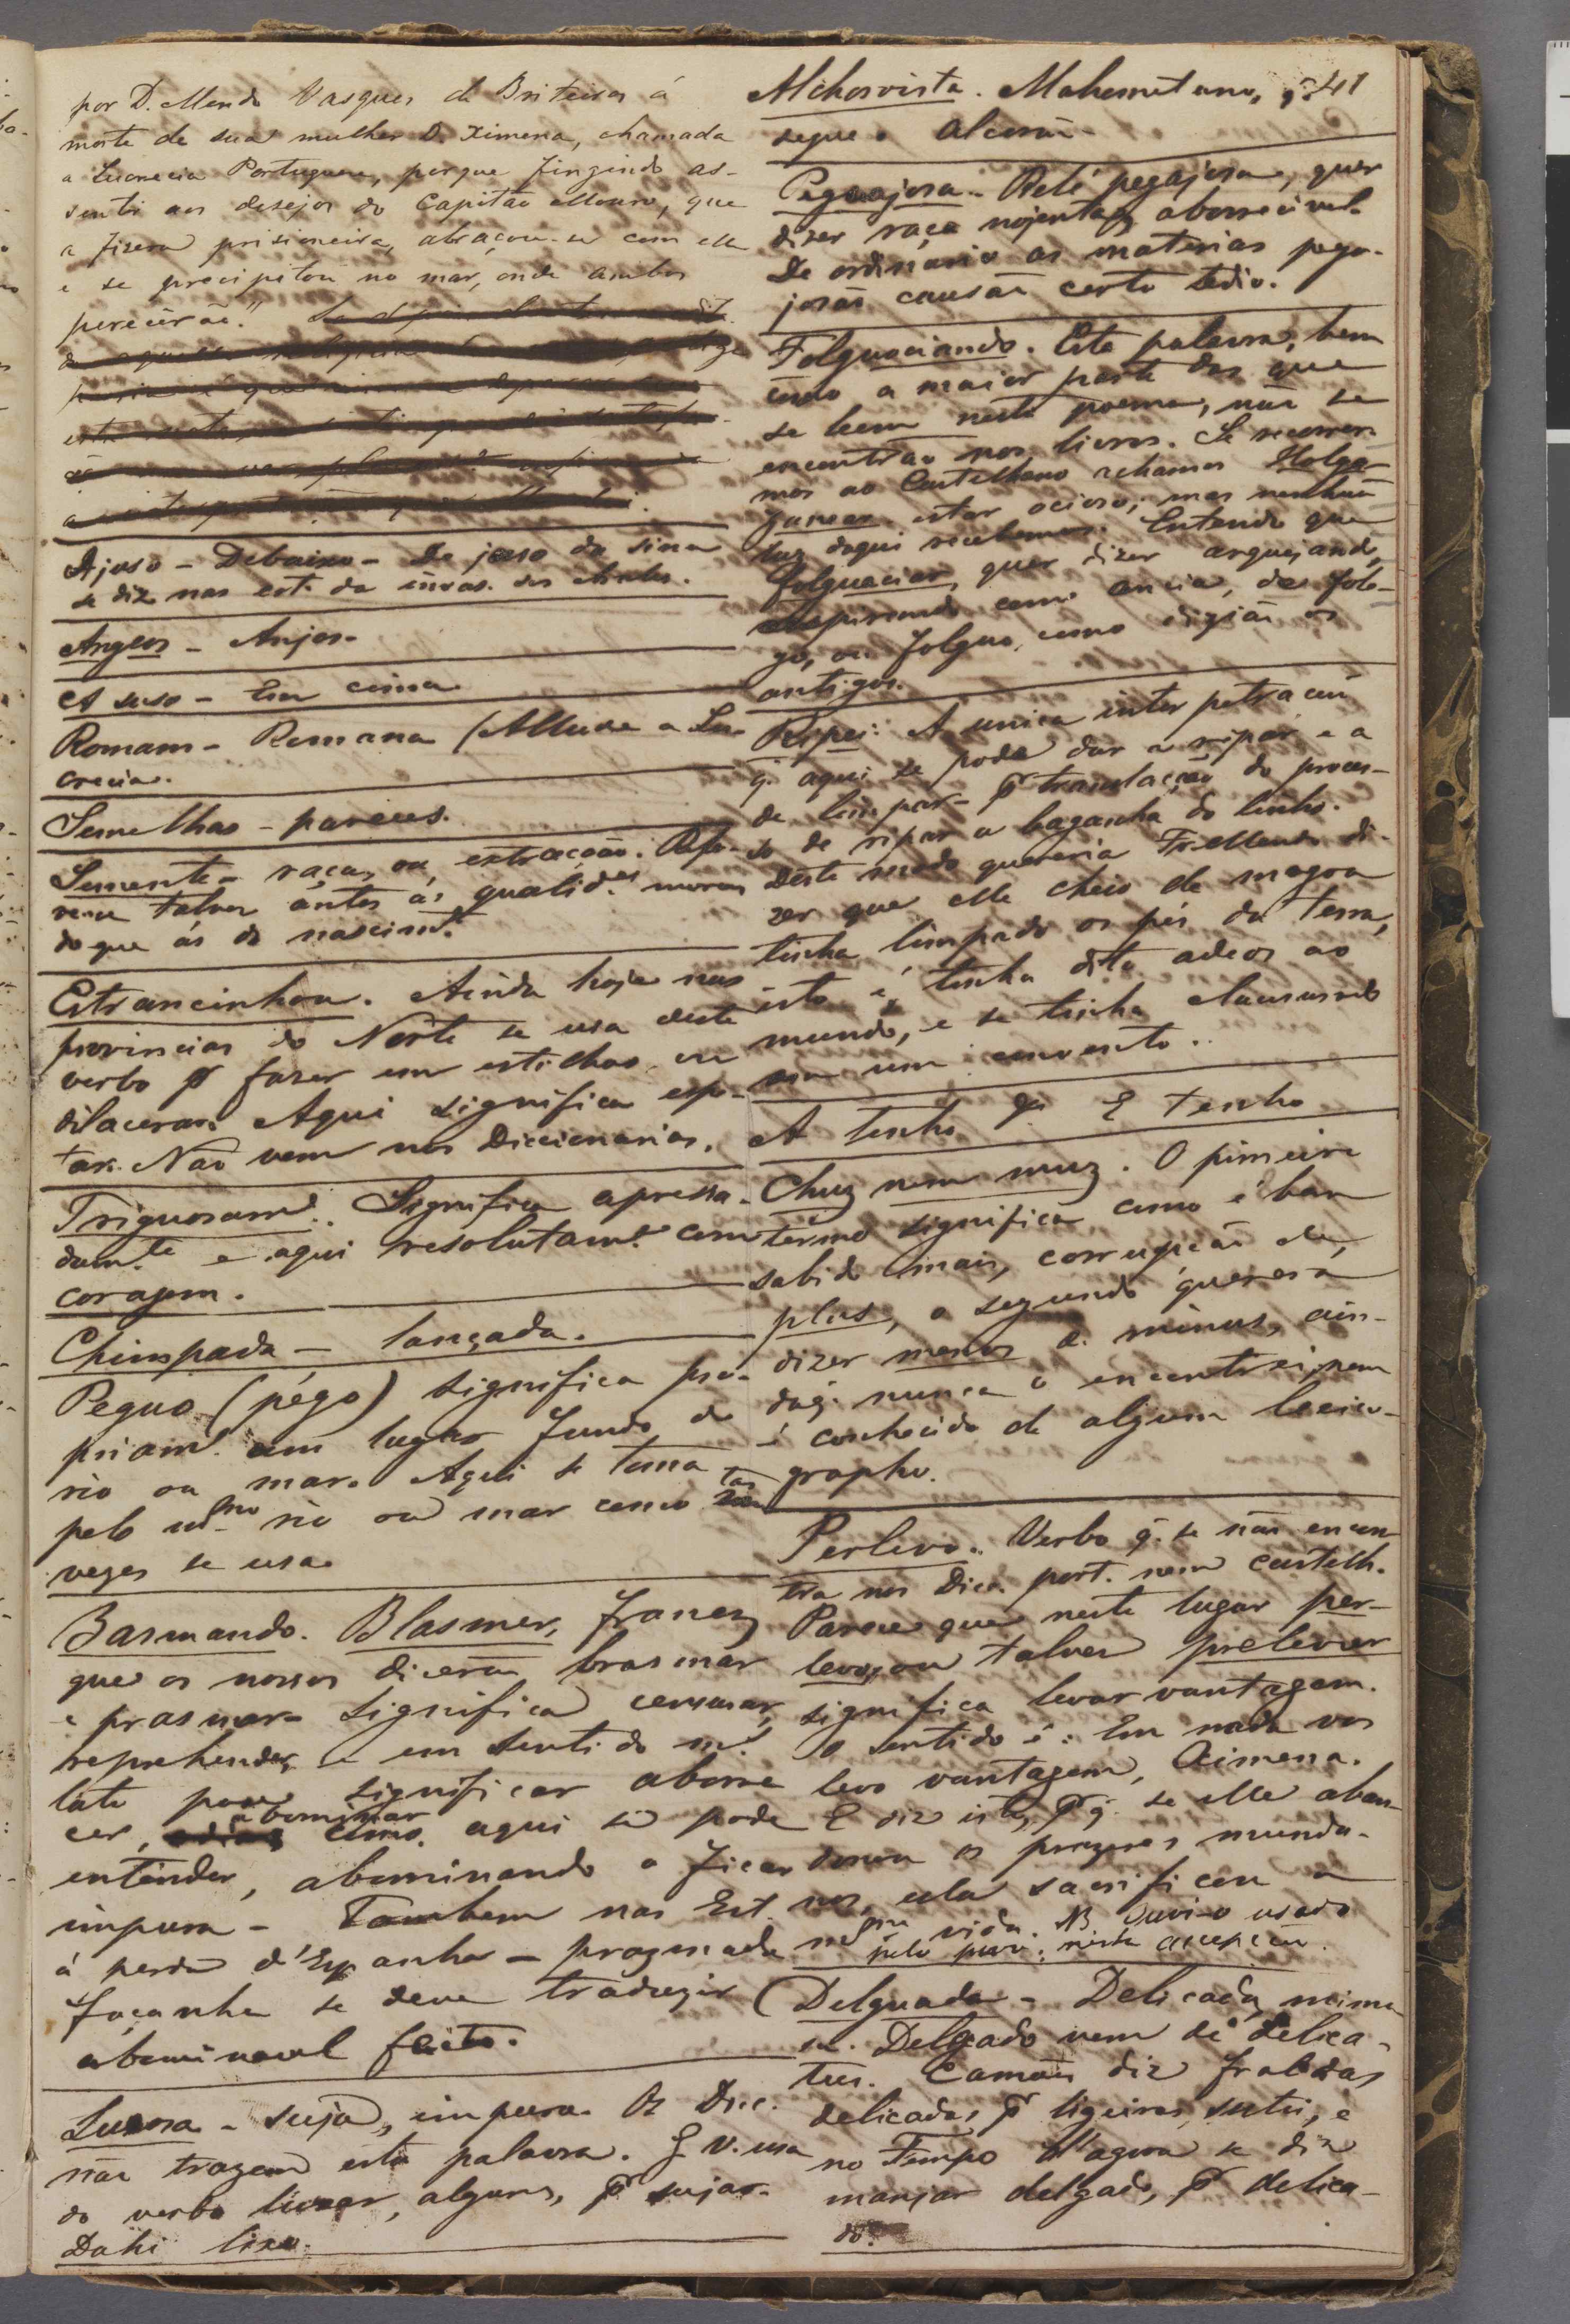 por D. Mendo Vasques de Briteiros á
morte de sua mulher D. Ximena, chamada
a Lucrecia Portugueza, porque fingindo as-
sentir aos desejos do Capitão Mouro, que
a fizera prisioneira, abraçou-se com elle
e se precipitou no mar, onde ambos
perecêrão."
Ajuso - Debaixo - De juso da sina
se diz nas est. da invas. dos Arabes.
Angeos - Anjos.
A suso - Em cima
Romam - Romana (Allude a Lu-
crecia.
Semelhas - pareces.
Semente - raça, ou extracção. Refe-
re-se talvez antes ás qualid.es moraes
do que ás do nascim.to
Estrancinhou. Ainda hoje nas
provincias do Norte se usa deste
verbo pr fazer em estilhas ou
dilacerar. Aqui significa
Não vem nos Diccionarios.
Triguosam.te Significa apressa-
dam.te e aqui resolutam.te com
coragem.
Chimpada - lançada.
Peguo (pégo) significa pro-
priam.te um lugar fundo do
rio ou mar. Aqui se toma
pelo m.mo rio ou mar como tas
vezes se usa.
Basmando. Blasmer, francez
que os nossos dicerão brasmar
e prasmar - significa censurar,
reprehender, e em sentido m.s
lato pode significar aborre
cer, abominar como aqui se pode
entender, abominando o ficar
impura - Tambem nas Est.
á perda d'Espanha - prasmada
façanha se deve traduzir
abominavel feito.
Luxosa - suja, impura. Os Dicc.
não trazem esta palavra. G. V. usa
do verbo lixar, alguns, pr sujar.
Dahi lixo.
Alchorvista. Mahometano, q. 41
segue o alcorão.
Peguajosa. Relé pegajosa, quer
dizer raça nojenta, aborrecivel.
De ordinario as materias pega-
josas causão certo tedio.
Folguaciando. Esta palavra, bem
como a maior parte das que
se leem neste poema, não se
encontrão nos livros. Se recorrer-
mos ao Castelhano achamos Holga-
zanear estar ocioso; mas nenhuã
luz daqui recebemos. Entendo que
folguaciar, quer dizer arquejando,
respirando com ancia, de fole-
go, ou folguo, como dizião os
antigos.
Ripei: A unica interpetração
q. aqui se pode dar a ripar é a
de limpar - pr translação do proces-
so de ripar a baganha do linho.
Deste modo quereria Fr. Mendo di-
zer que elle cheio de magoa
tinha limpado os pés da terra,
isto é, tinha dito adeos ao
mundo, e se tinha clausurado
em um convento.
A tenho q. E tenho
Chuz nem muz. O pimeiro
termo significa como é bem
sabido mais, corrupção de
plus, o segundo quererá
dizer menos de minus, ain-
daq. nunca o encontrei, nem
é conhecido de algum lexico-
grapho.
Perlevo. Verbo q. se não encon
tra nos Dicc. port. nem castelh.
Parece que neste lugar per-
levo, ou talvez prelevar
significa levar vantagem.
O sentido é: Em nada vos
levo vantagem, Ximena.
E diz isto, pr q. se elle aban-
donou os prazeres munda-
nos, ela sacrificou a
vida. NB. Ouvi-o usado
pelo povo nesta accepção.
(Delguada - Delicada, mimo
sa. Delgado vem de delica-
tus. Camões diz fraldas
delicadas pr ligeiras, sutis, e
no Tempo d'agora se diz
manjar delgado, pr delica-
do.